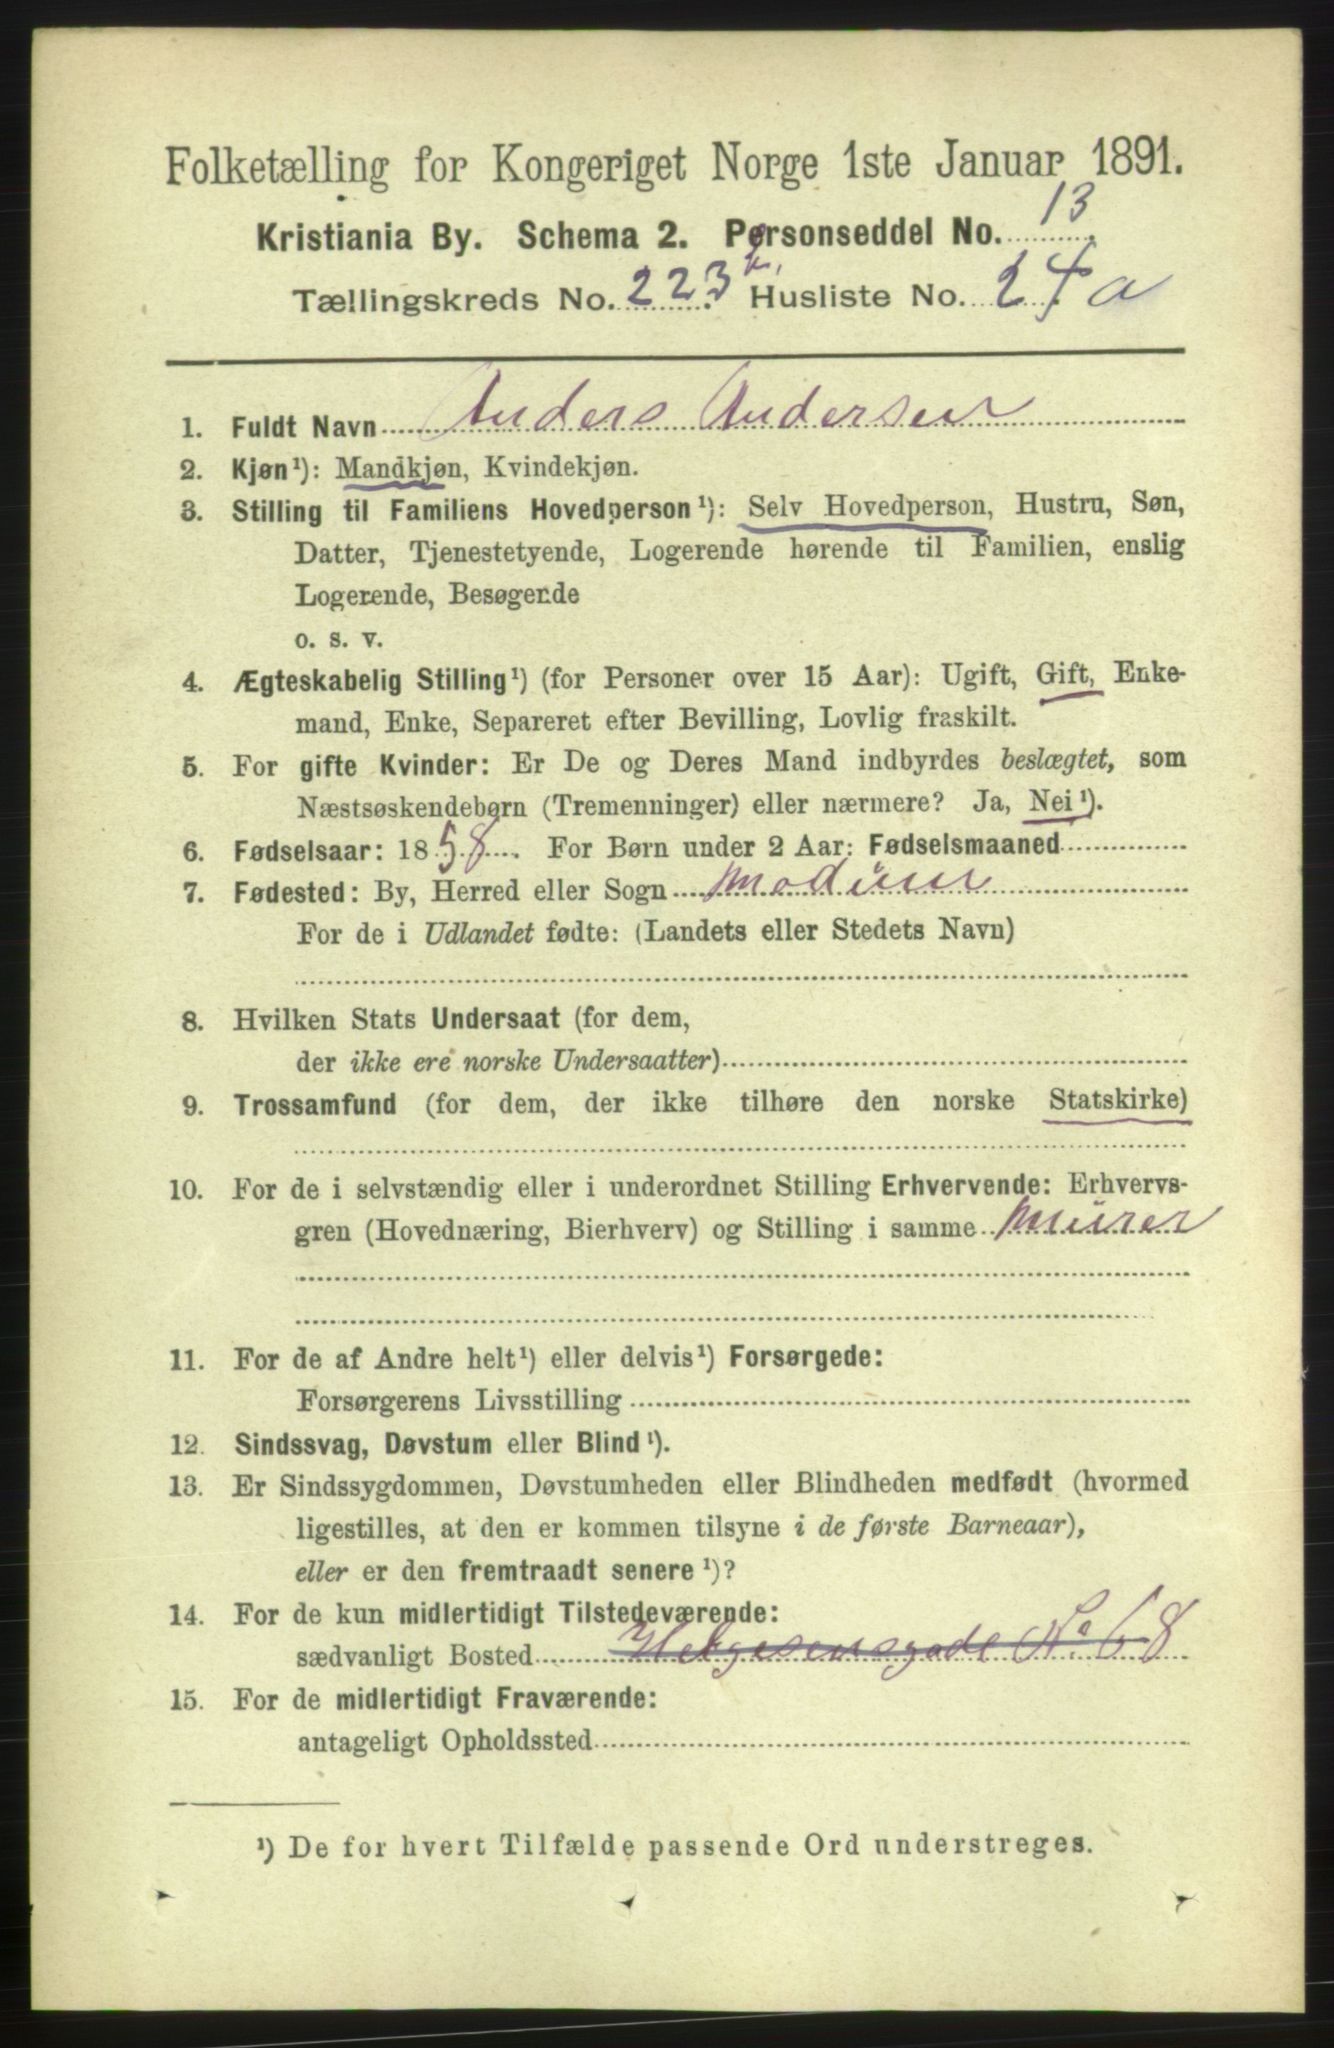 Folketælling for Kongeriget Norge 1ste Januar 1891.
Kristiania By. Schema 2. Personseddel No. 13
Tællingskreds No. 223 Husliste No. 24a
1. Fuldt Navn Anders Andersen
2. Kjøn¹): Mandkjøn, Kvindekjøn.
3. Stilling til Familiens Hovedperson¹): Selv Hovedperson, Hustru, Søn,
Datter, Tjenestetyende, Logerende hørende til Familien, enslig
Logerende, Besøgende
o. s. v.
4. Ægteskabelig Stilling¹) (for Personer over 15 Aar): Ugift, Gift, Enke-
mand, Enke, Separeret efter Bevilling, Lovlig fraskilt.
5. For gifte Kvinder: Er De og Deres Mand indbyrdes beslægtet, som
Næstsøskendebørn (Tremenninger) eller nærmere? Ja, Nei¹).
6. Fødselsaar: 1858. For Børn under 2 Aar: Fødselsmaaned
7. Fødested: By, Herred eller Sogn Modum
For de i Udlandet fødte: (Landets eller Stedets Navn)
8. Hvilken Stats Undersaat (for dem,
der ikke ere norske Undersaatter)
9. Trossamfund (for dem, der ikke tilhøre den norske Statskirke)
10. For de i selvstændig eller i underordnet Stilling Erhvervende: Erhvervs-
gren (Hovednæring, Bierhverv) og Stilling i samme Murer
11. For de af Andre helt¹) eller delvis¹) Forsørgede:
Forsørgerens Livsstilling
12. Sindssvag, Døvstum eller Blind¹).
13. Er Sindssygdommen, Døvstumheden eller Blindheden medfødt (hvormed
ligestilles, at den er kommen tilsyne i de første Barneaar),
eller er den fremtraadt senere¹)?
14. For de kun midlertidigt Tilstedeværende:
sædvanligt Bosted Helgesensgade No. 68
15. For de midlertidigt Fraværende:
antageligt Opholdssted
¹) De for hvert Tilfælde passende Ord understreges.